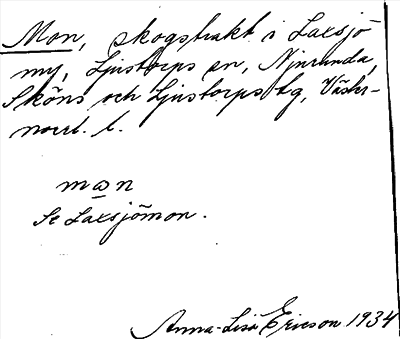 Mon, skogstrakt i Laxsjö
my, Ljustorps sn, Njurunda,
Sköns och Ljustorps tg, Väster-
norrl. l.
mɷn
Se Laxsjömon.
Anna-Lisa Ericson 1934